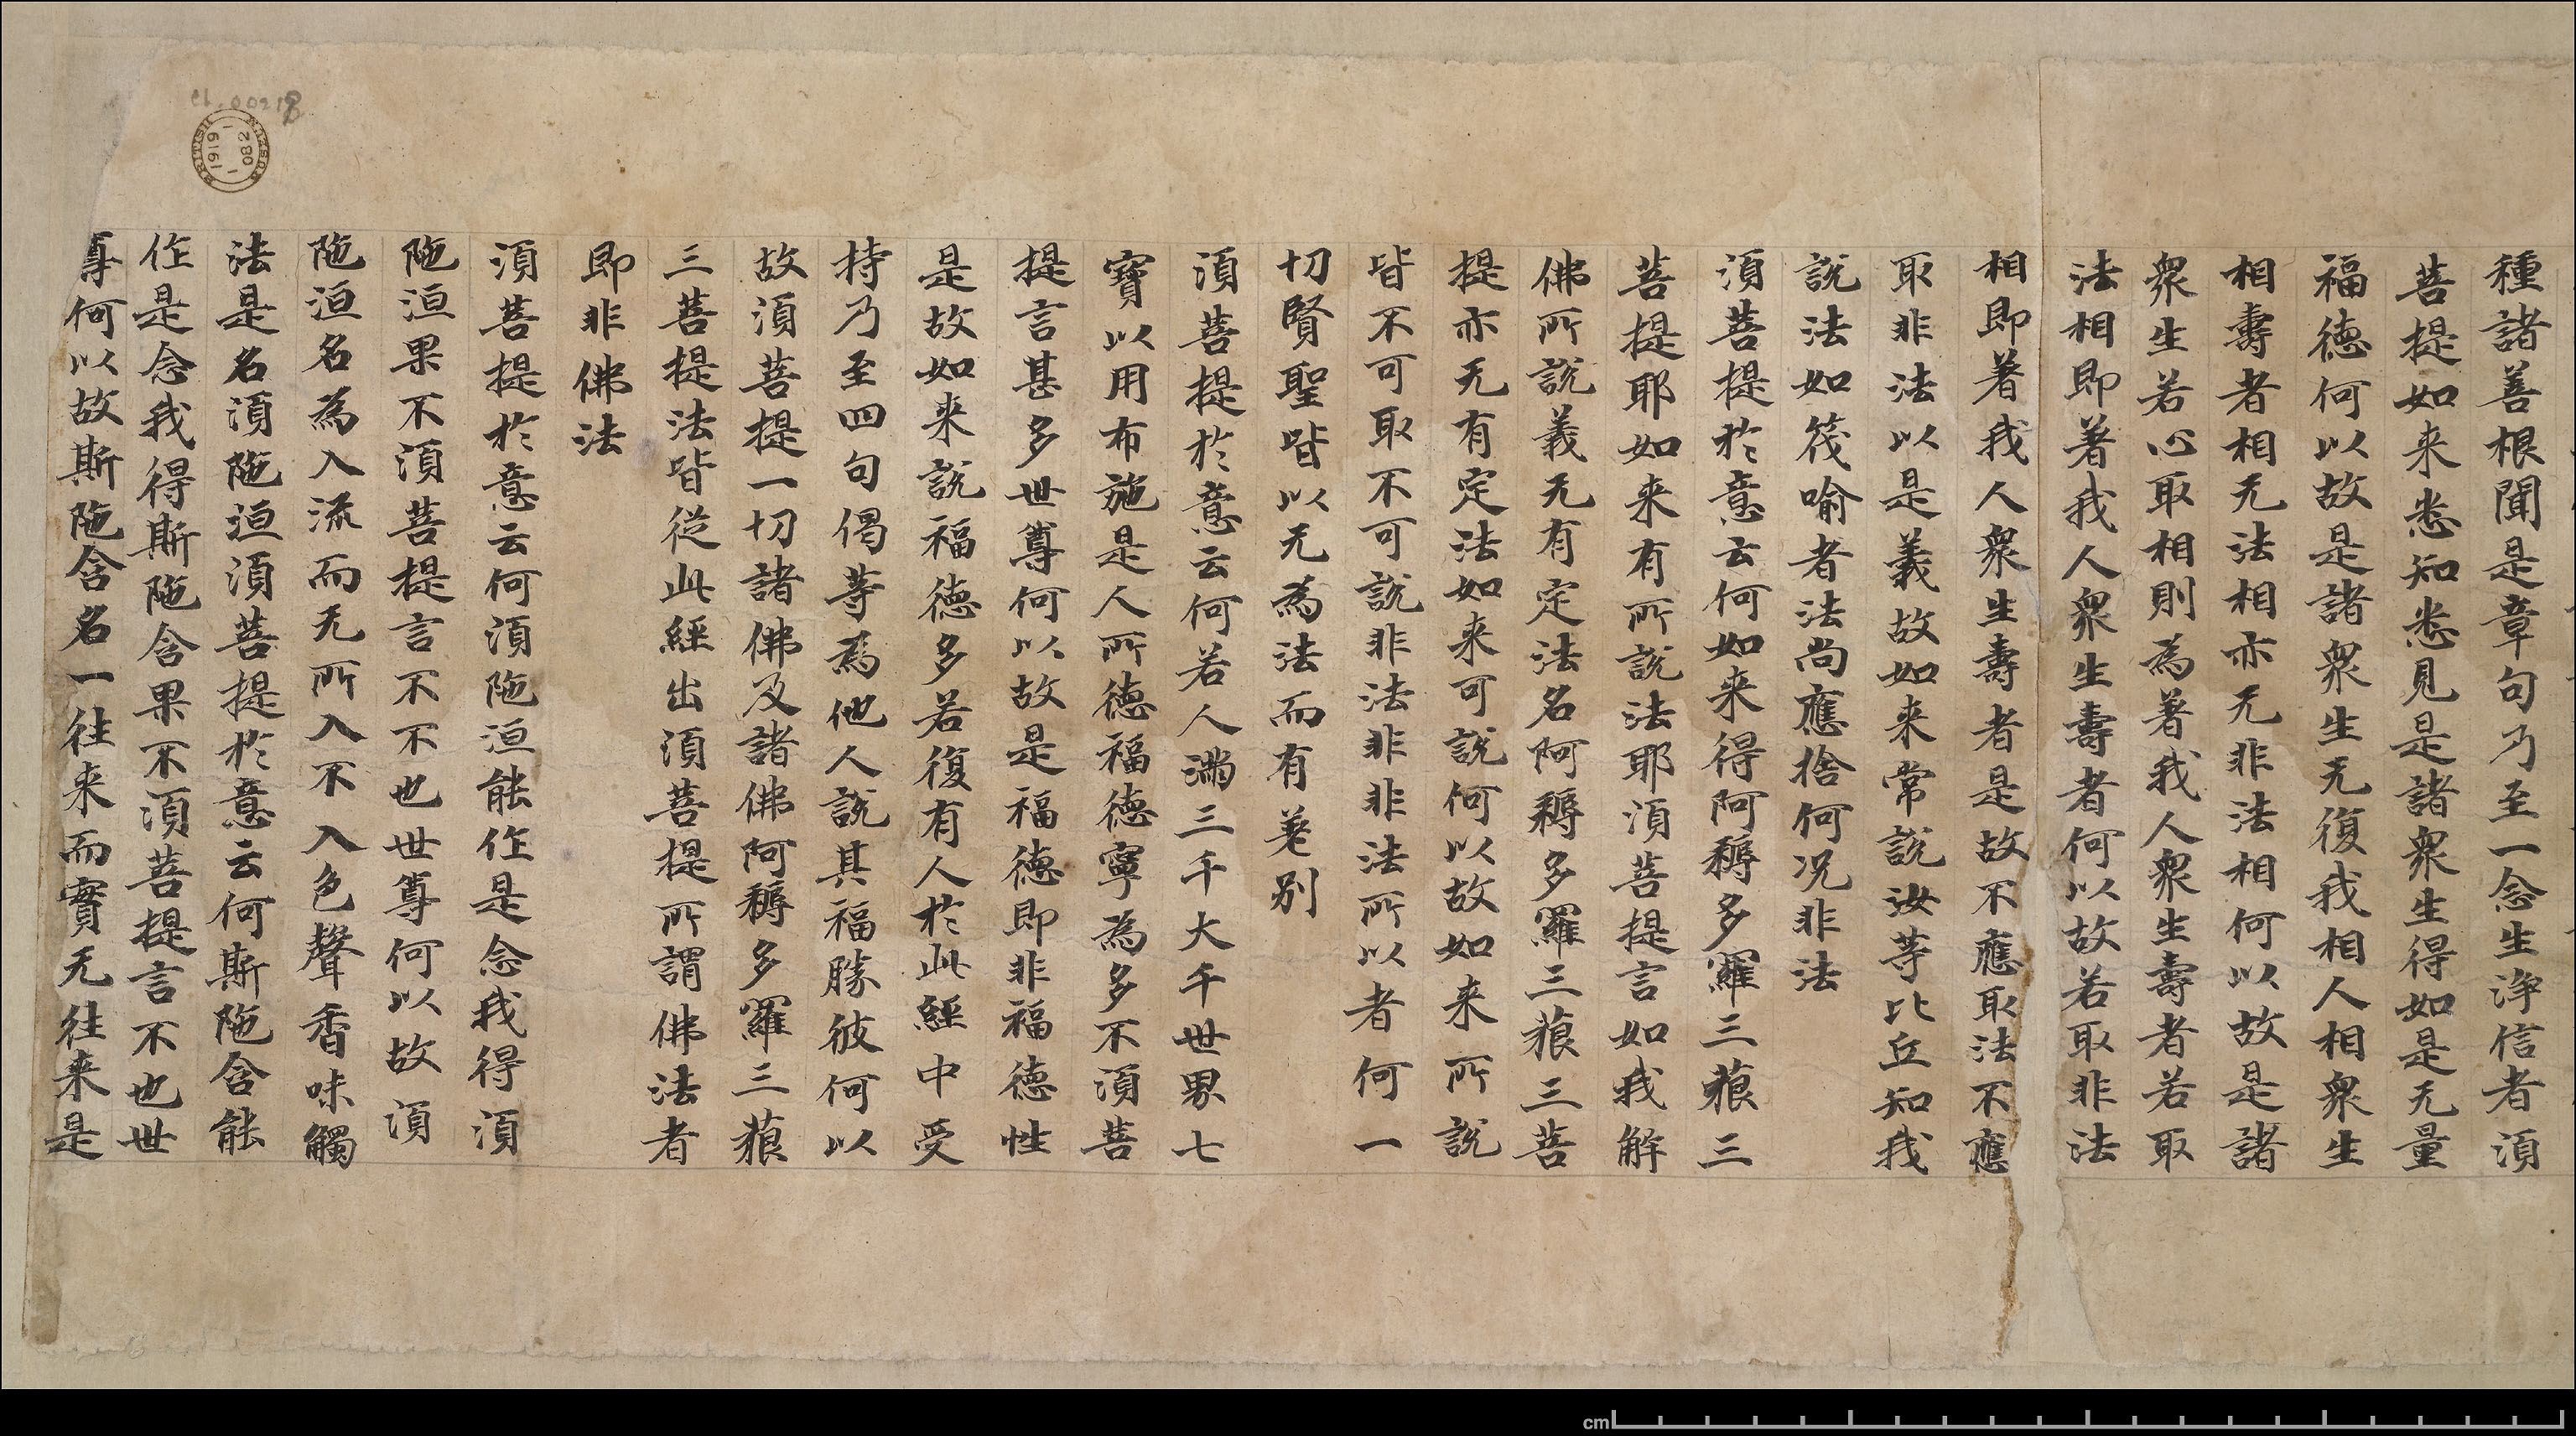 種諸善根聞是章句乃至一念生淨信者須
菩提如来悉知悉見是諸衆生得如是无量
福德何以故是諸衆生无復我相人相衆生
相壽者相无法相亦无非法相何以故是諸
衆生若心取相則為著我人衆生壽者若取
法相即著我人衆生壽者何以故若取非法
相即著我人衆生壽者是故不應取法不應
取非法以是義故如来常說汝等比丘知我
說法如筏喻者法尚應捨何况非法
須菩提於意云何如来得阿耨多羅三藐三
菩提耶如来有所說法耶須菩提言如我解
佛所說義无有定法名阿耨多羅三藐三菩
提亦无有定法如来可說何以故如来所說
皆不可取不可說非法非非法所以者何一
切賢聖皆以无為法而有差别
須菩提於意云何若人滿三千大千世界七
寶以用布施是人所德福德寧為多不須菩
提言甚多世尊何以故是福德即非福德性
是故如来說福德多若復有人於此經中受
持乃至四句偈等為他人說其福勝彼何以
故須菩提一切諸佛及諸佛阿耨多羅三藐
三菩提法皆從此經出須菩提所謂佛法者
即非佛法
須菩提於意云何須陁洹能作是念我得須
陁洹果不須菩提言不不也世尊何以故須
陁洹名為入流而无所入不入色聲香味觸
法是名須陁洹須菩提於意云何斯陁含能
作是念我得斯陁含果不須菩提言不也世
尊何以故斯陁含名一往来而實无往来是
Ch.00218
BRITISH MUSEUM
1919
082
cm